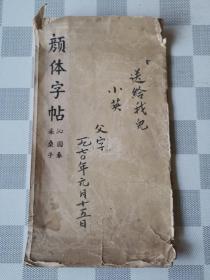 颜体字帖
沁园春
采桑子
送给我儿
小英
父字
一九七〇年元月十五日